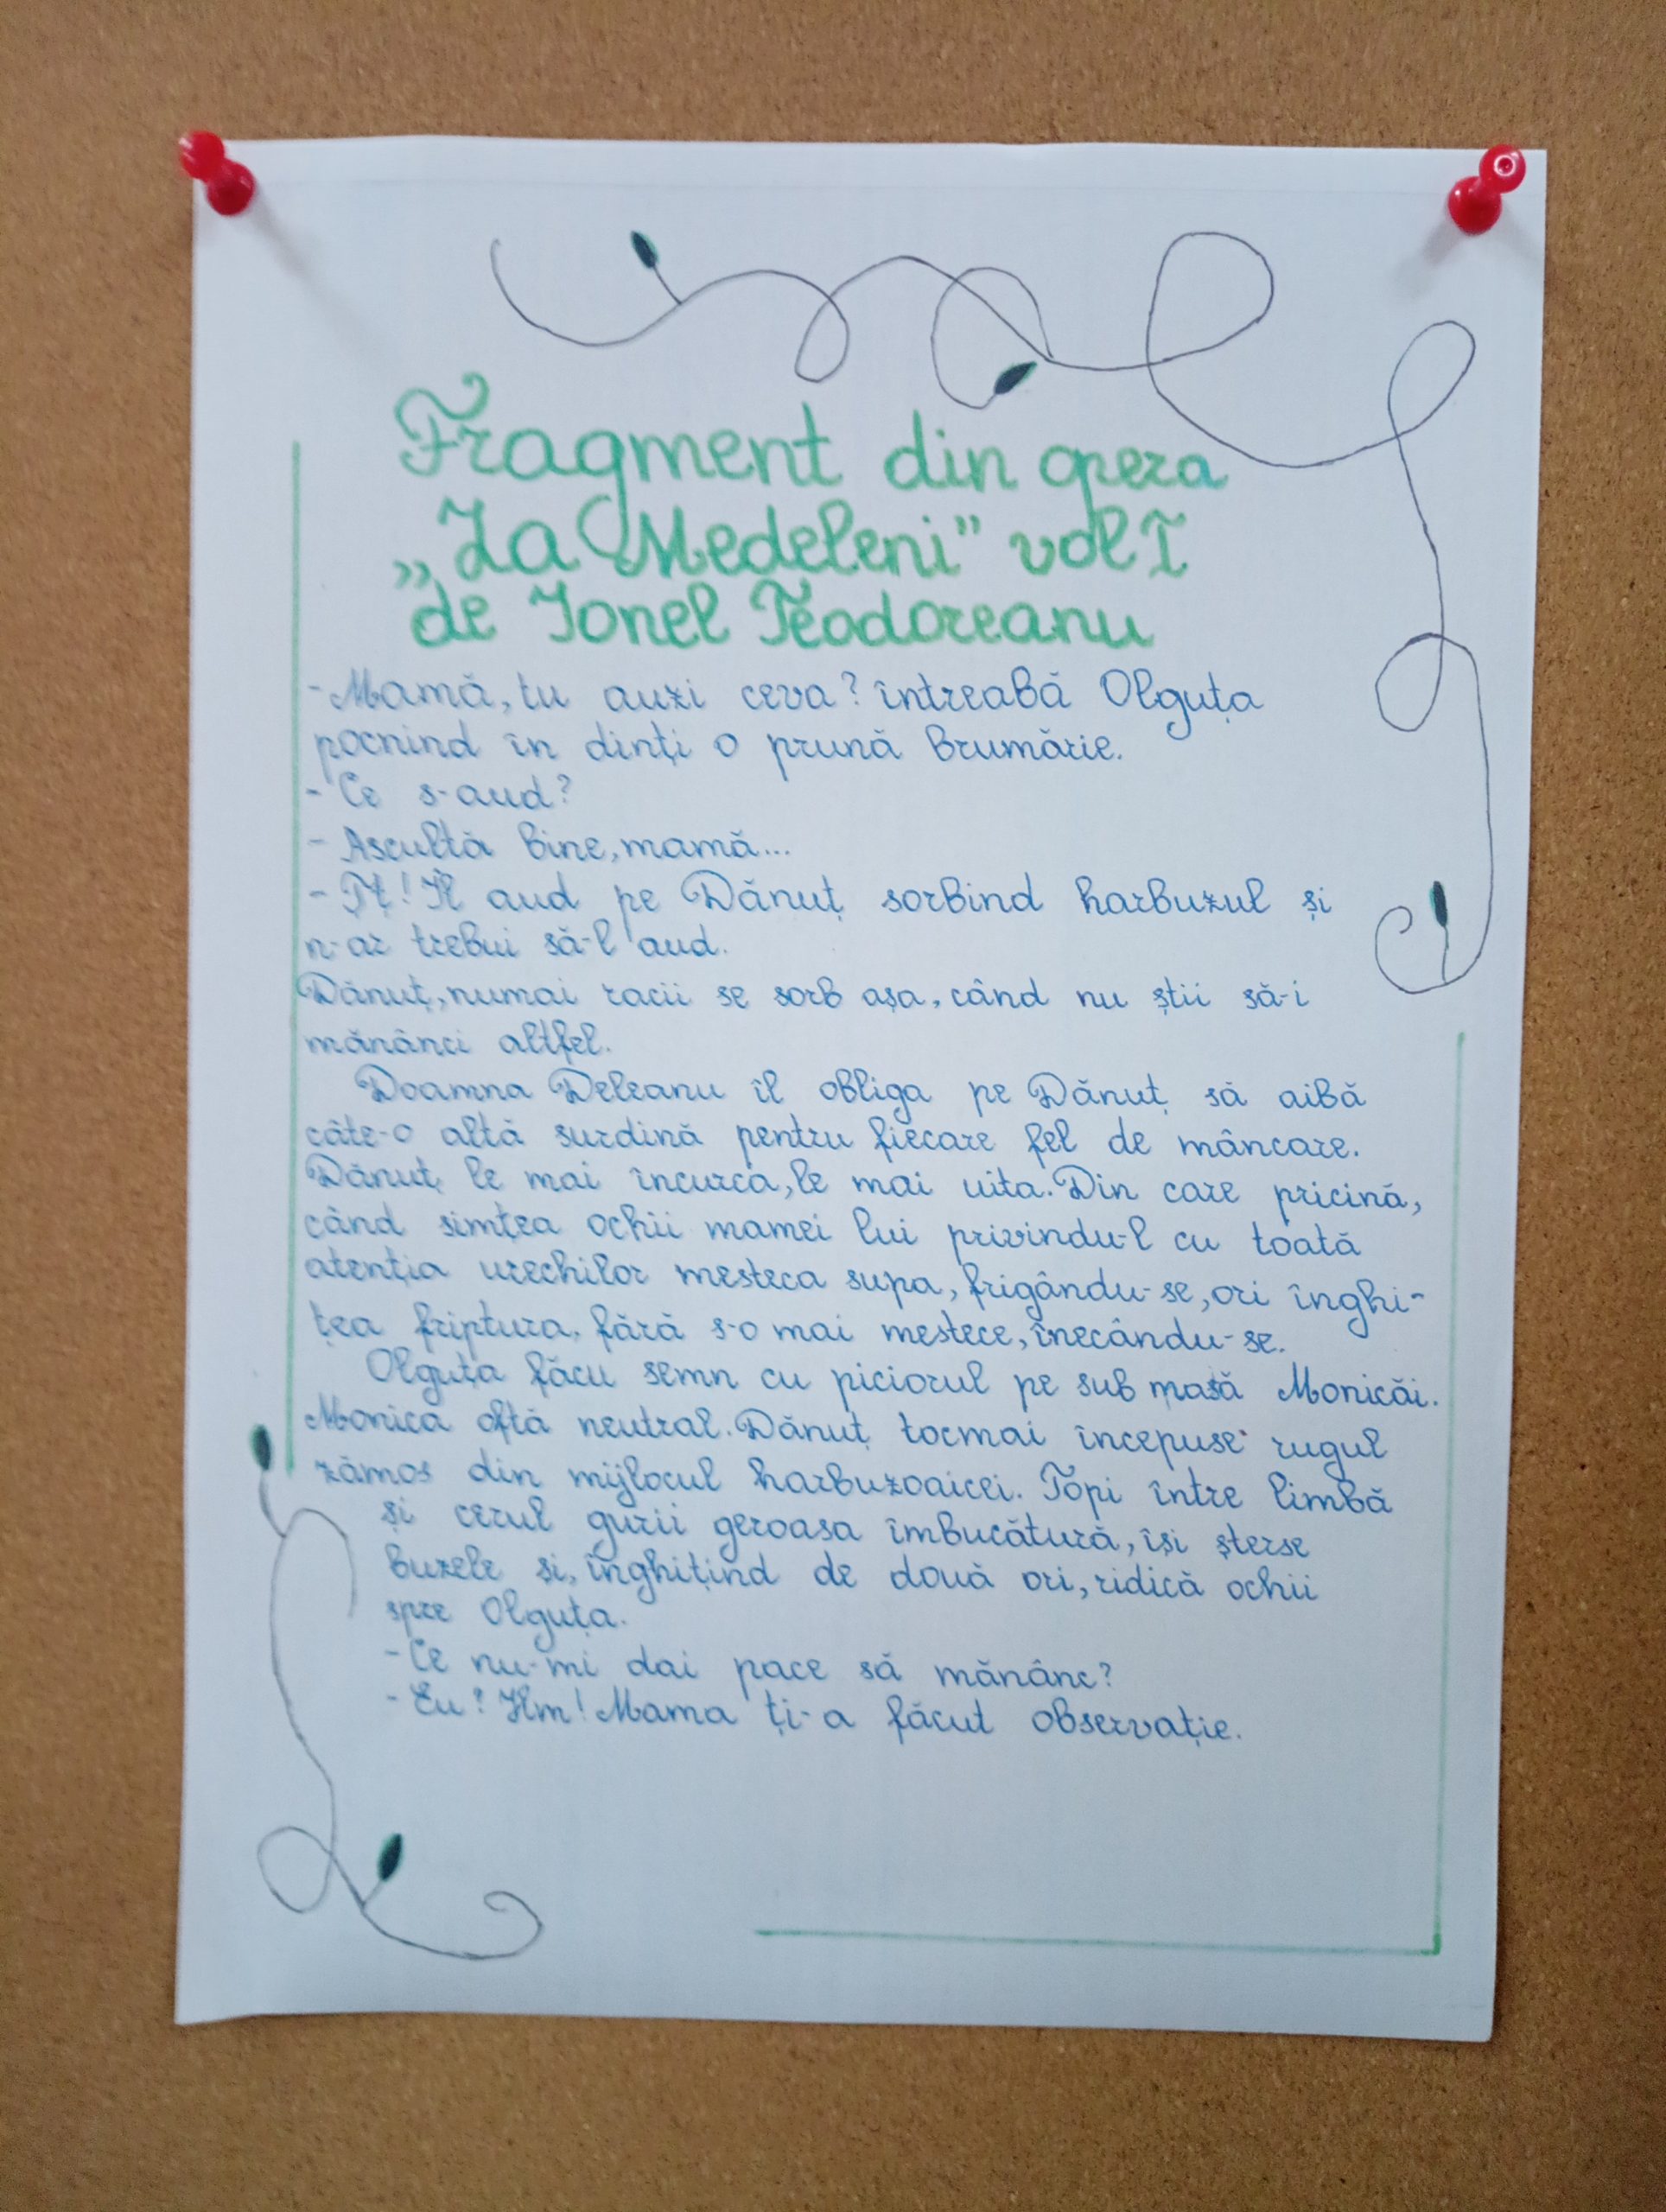 Fragment din opera
„La Medeleni" vol I
de Ionel Teodoreanu
- Mamă, tu auzi ceva? întreabă Olguța
pocnind în dinți o prună brumărie.
- Ce s-aud?
- Ascultă bine, mamă...
- Pț! Îl aud pe Dănuț sorbind harbuzul și
n-ar trebui să-l aud.
Dănuț, numai racii se sorb așa, când nu știi să-i
mănânci altfel.
Doamna Deleanu îl obliga pe Dănuț să aibă
câte-o altă surdină pentru fiecare fel de mâncare.
Dănuț le mai încurca, le mai uita. Din care pricină,
când simțea ochii mamei lui privindu-l cu toată
atenția urechilor mesteca supa, frigându-se, ori înghi-
țea friptura, fără s-o mai mestece, înecându-se.
Olguța făcu semn cu piciorul pe sub masă Monicăi.
Monica oftă neutral. Dănuț tocmai începuse rugul
zămos din mijlocul harbuzoaicei. Topi între limbă
și cerul gurii geroasa îmbucătură, își șterse
buzele și, înghițind de două ori, ridică ochii
spre Olguța.
- Ce nu-mi dai pace să mănânc?
- Eu? Hm! Mama ți-a făcut observație.